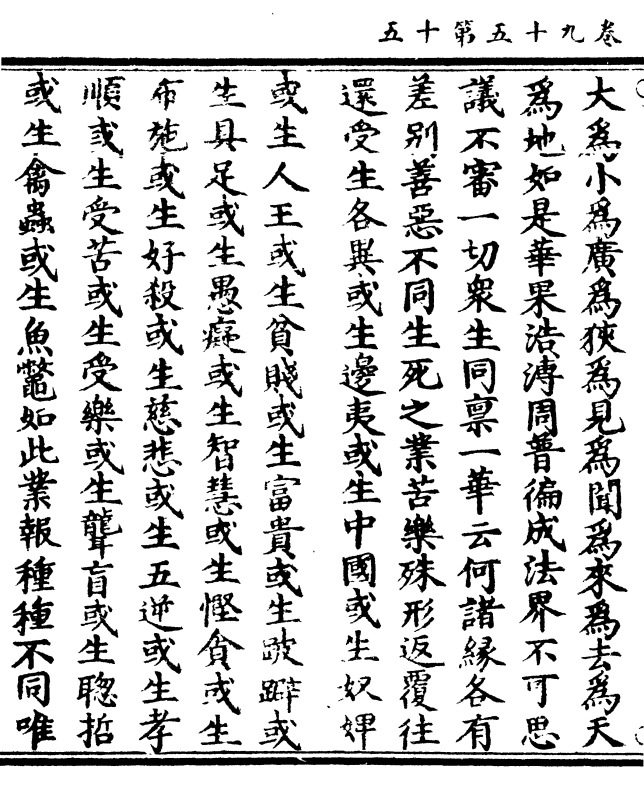 卷九十五第十五
大為小為廣為狹為見為聞為來為去為天
為地如是華果浩溥周普徧成法界不可思
議不審一切衆生同禀一華云何諸緣各有
差别善惡不同生死之業苦樂殊形返覆往
還受生各異或生邊夷或生中國或生奴婢
或生人王或生貧賤或生富貴或生跛躃或
生具足或生愚癡或生智慧或生慳貪或生
布施或生好殺或生慈悲或生五逆或生孝
順或生受苦或生受樂或生聾盲或生聰哲
或生禽蟲或生魚鼈如此業報種種不同唯